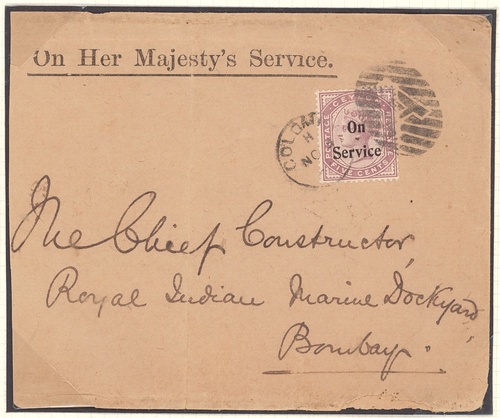 On Her Majesty's Service.
POSTAGE CEYLON
On
Service
FIVE CENTS
COLOM
H
NO
The Chief Constructor,
Royal Indian Marine Dockyard
Bombay.